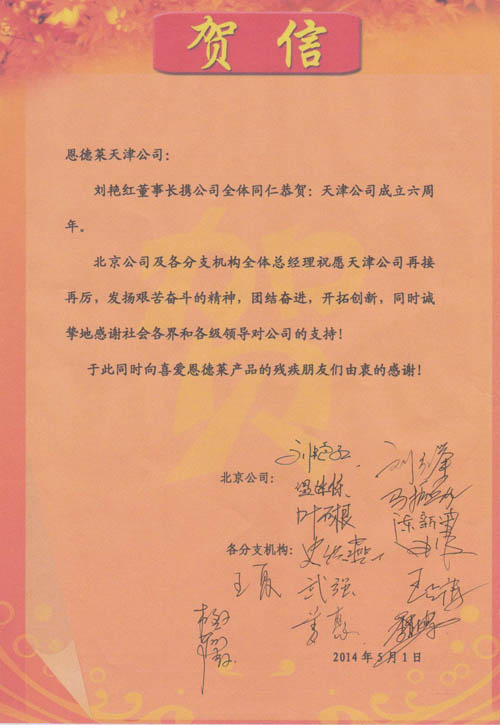 贺信
恩德莱天津公司：
刘艳红董事长携公司全体同仁恭贺：天津公司成立六周
年。
北京公司及各分支机构全体总经理祝愿天津公司再接
再厉，发扬艰苦奋斗的精神，团结奋进，开拓创新，同时诚
挚地感谢社会各界和各级领导对公司的支持！
于此同时向喜爱恩德莱产品的残疾朋友们由衷的感谢！
贺
北京公司：
陈新
各分支机构：
王夏 武强
2014年5月1日